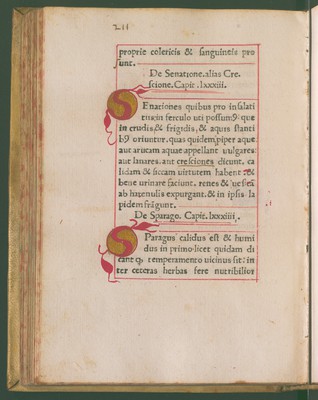 211
proprie colericis & sanguineis pro
sunt.
De Senatione. alias Cre-
scione. Capit. lxxxiii.
SEnationes quibus pro insalati
tur in ferculo uti possum9: que
in crudis & frigidis, & aquis stanti
b9 oriuntur. quas quidem piper aque
aut aricam aquae appellant uulgares
aut lauares. aut cresciones dicunt. ca
lidam & siccam uirtutem habent: &
bene urinare faciunt. renes & uesicã
ab harenulis expurgant. & in ipsis la
pidem frãgunt.
De Sparago. Capit. lxxxiiii.
SParagus calidus est & humi
dus in primo: licet quidam di
cant q temperamento uicinus sit: in
ter ceteras herbas fere nutribilior